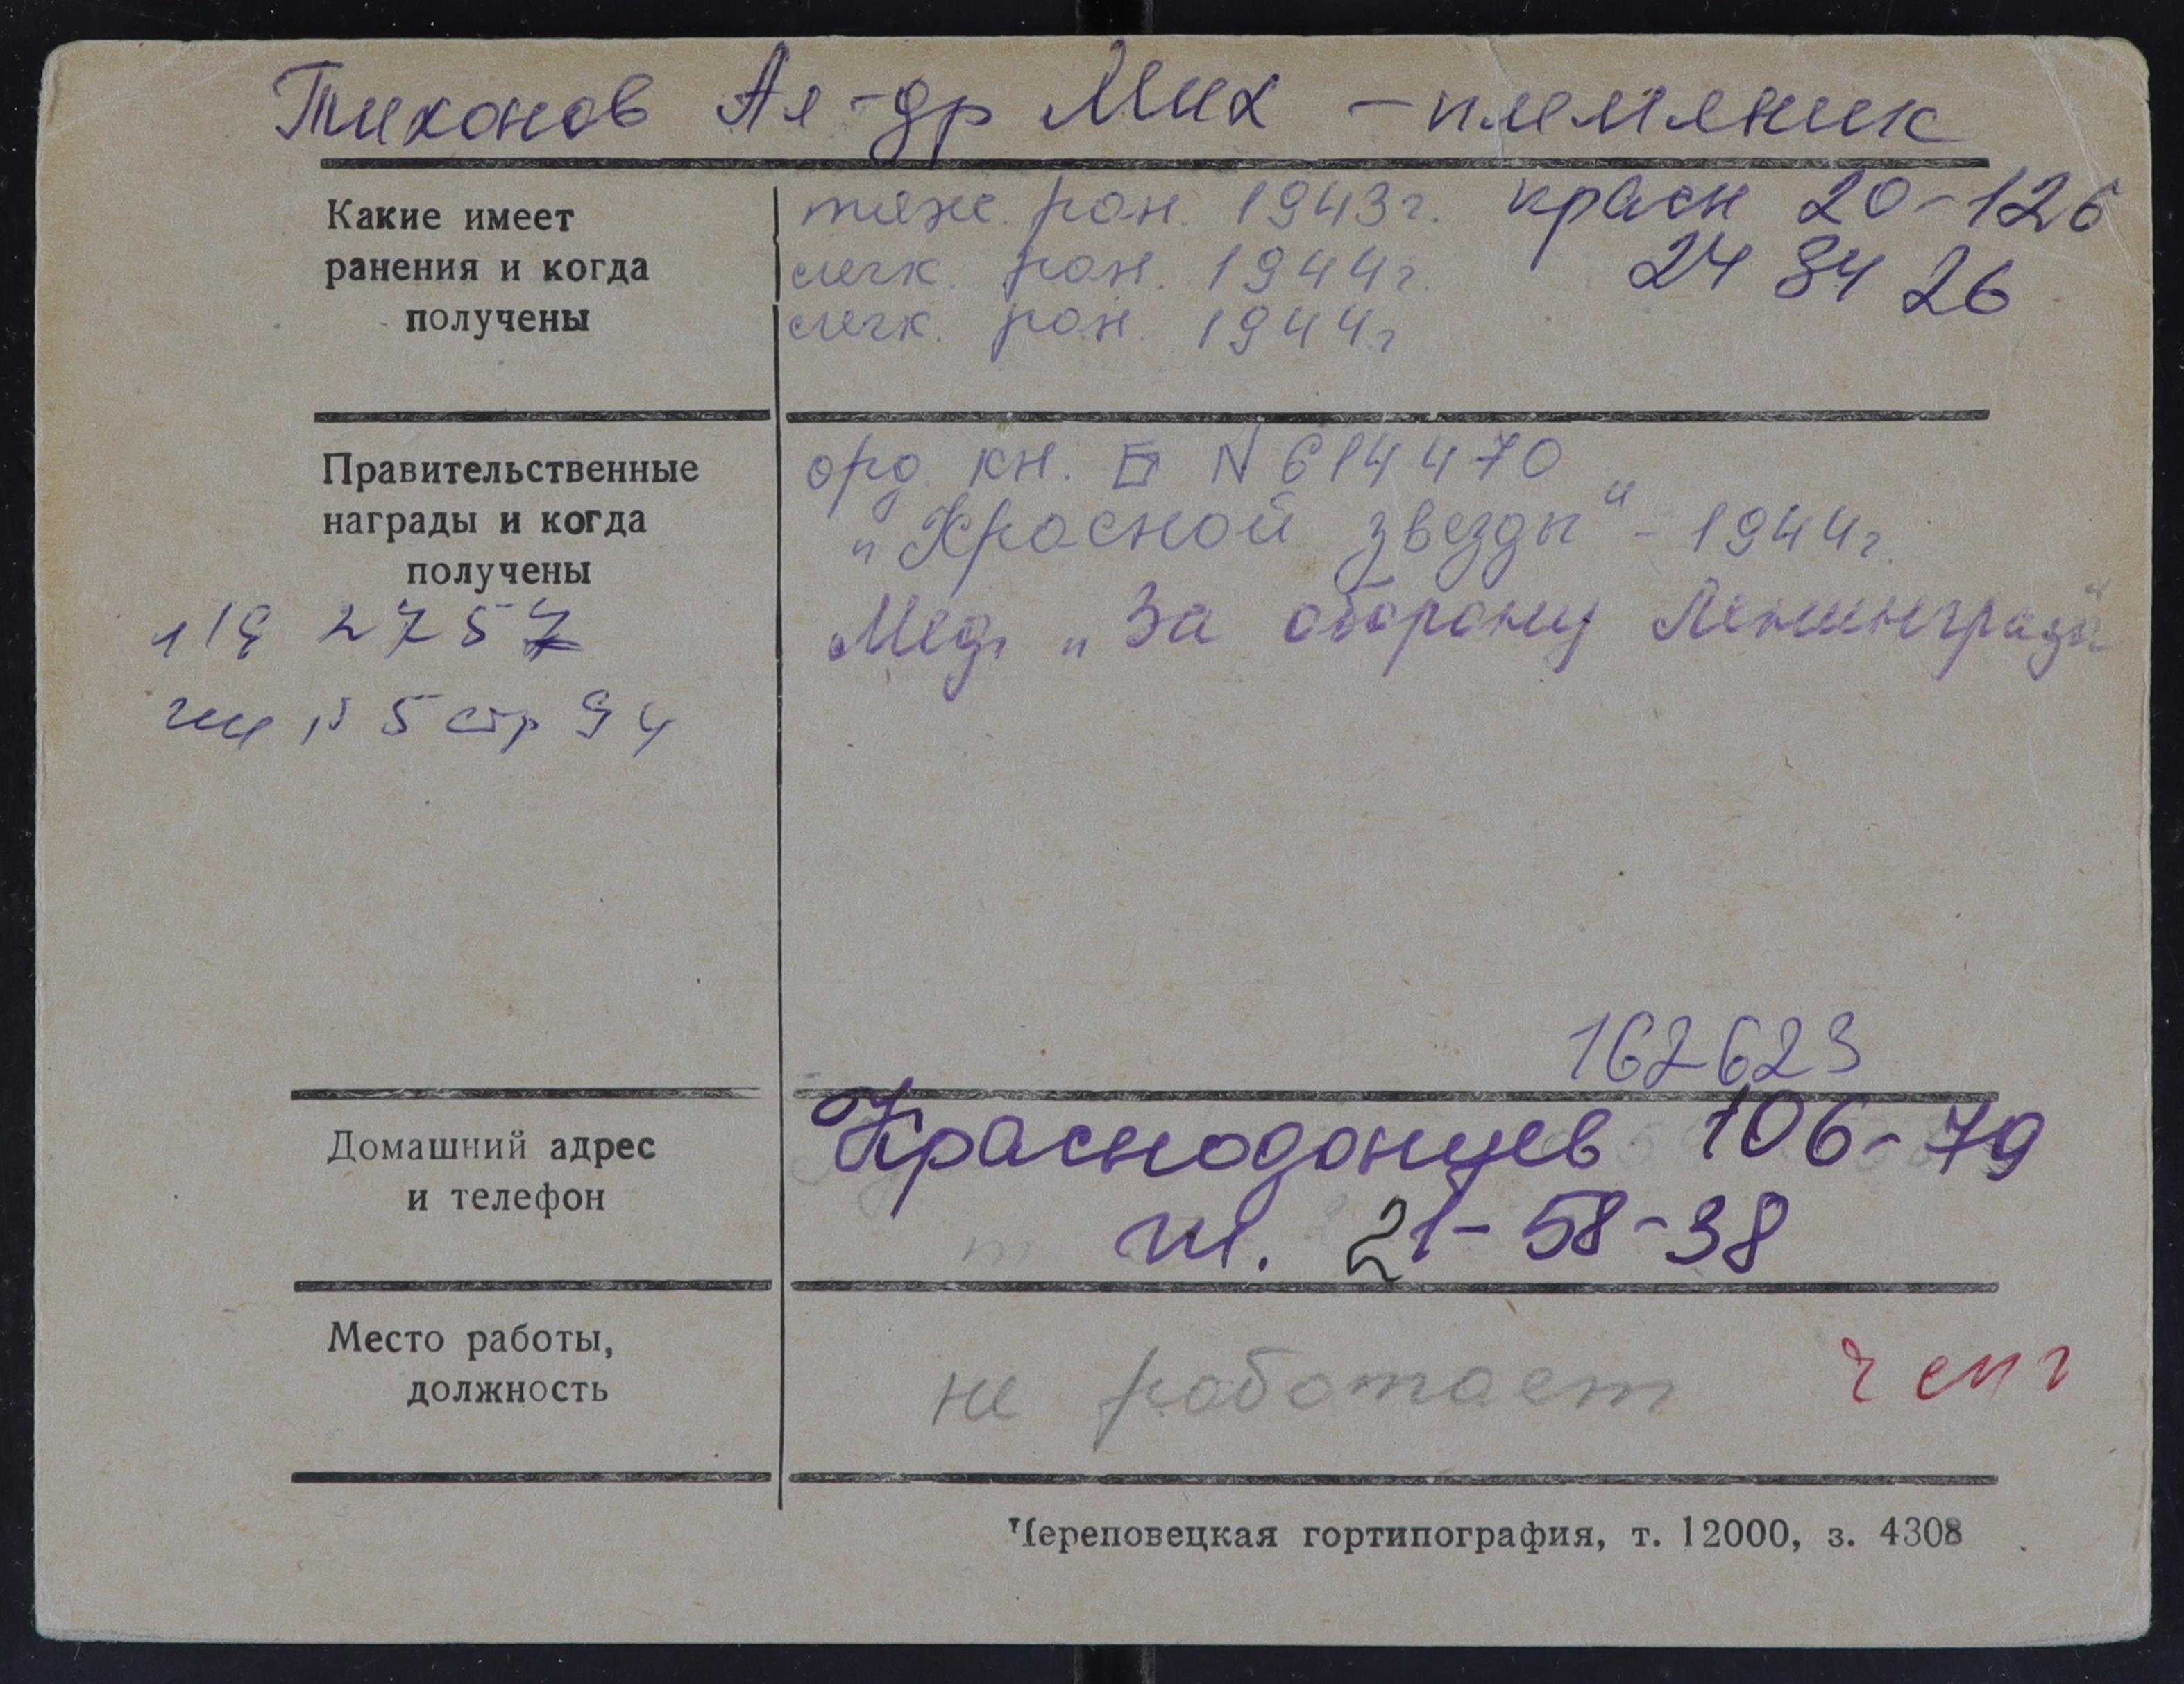 Тихонов Ал-др Мих - племяник
Какие имеет
ранения и когда
получены
тяж. ран. 1943г.
легк. ран. 1944г.
легк. ран. 1944г
красн 20-126
24 84 26
Правительственные
награды и когда
получены
орд. кн. N 614470
„Красной звезды" - 1944г.
Мед. „За оборону Ленинграда"
2757
5 стр 94
162623
Домашний адрес
и телефон
Краснодонцев 106-79
т. 21-58-38
Место работы,
должность
не работает
Череповецкая гортипография, т. 12000, з. 4308